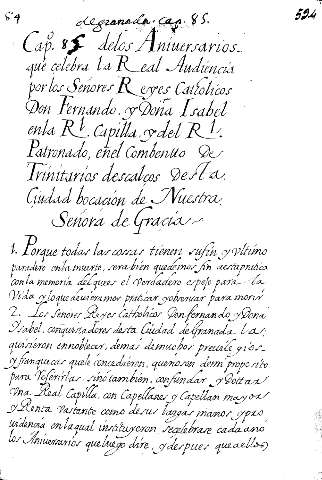 54 degranada. cap. 85. 594
Cap.º 85 de los Aniversarios
que celebra la Real Audiencia
por los Señores Reyes Catholicos
Don Fernando, y Doña Isabel
en la Rl. Capilla, y del Rl.
Patronado, en el Combento de
Trinitarios descalços de la
Ciudad bocacion de Nuestra
Señora de Gracia
1. Porque todas las cossas tienen su fin, y ultimo
paradero en la muerte, sera bien quedemos fin a este
con la memoria del que es el verdadero espejo para la
Vida y lo que devieramos praticar y observar para morir
2. Los Señores Reyes Catholicos Don fernando y Doña
Isabel, conquistadores desta Ciudad de Granada. la
quisieron ennoblecer, demas de muchos previlegios
y franquezas que le concedieron, que no son de mi proposito
para referirlas sino tambien, con fundar, y dotar
Una Real Capilla, con Capellanes y Capellan mayor
y Renta bastante como de sus largas manos, y pro
videncia en la qual instituyeron se celebrase cada año
los Aniversarios que luego dire, y despues que a ellos